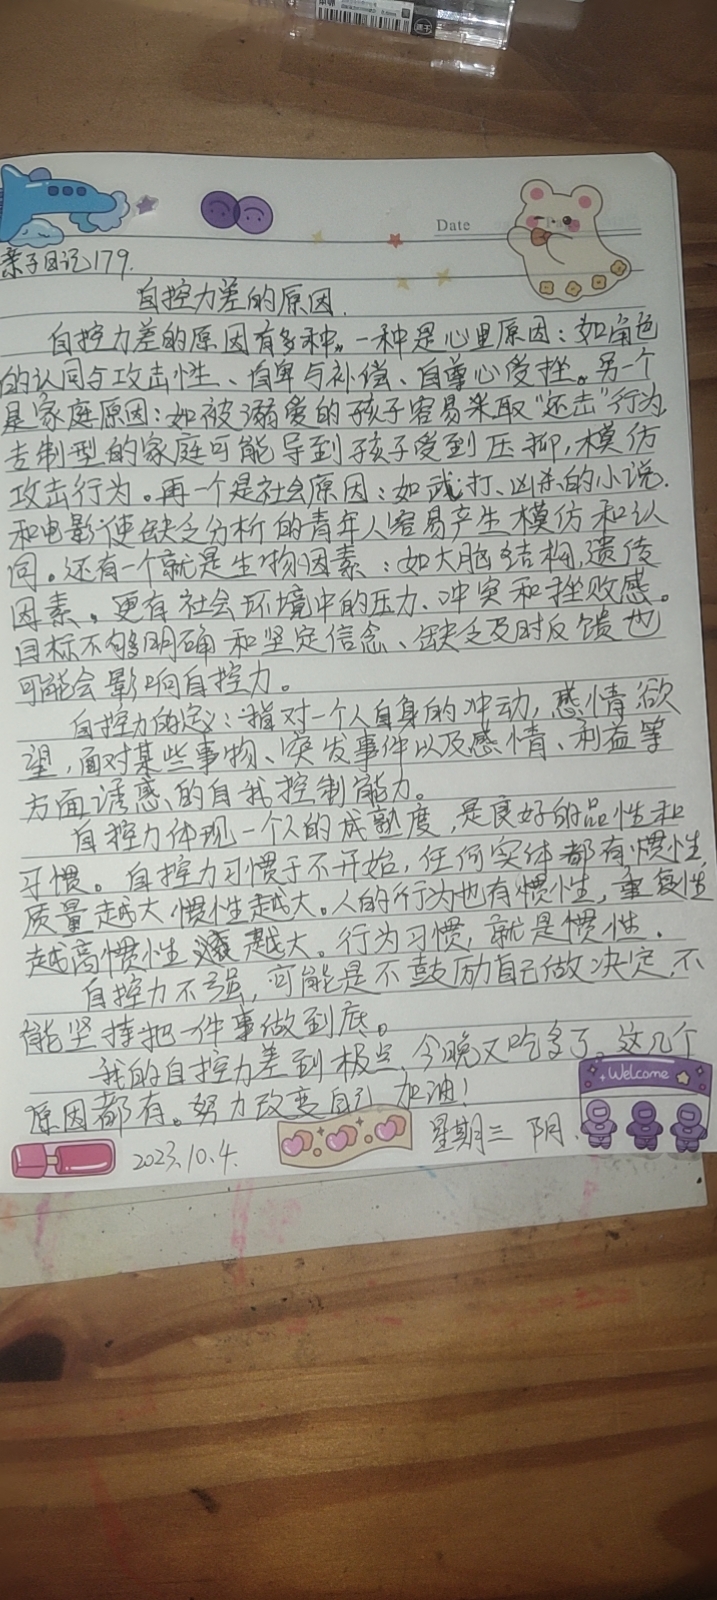 Date
亲子日记179.
自控力差的原因.
自控力差的原因有多种。一种是心里原因：如角色
的认同与攻击性、自卑与补偿、自尊心受挫。另一个
是家庭原因：如被溺爱的孩子容易采取“还击”行为,
专制型的家庭可能导到孩子受到压抑,模仿
攻击行为。再一个是社会原因：如武打、凶杀的小说.
和电影使缺乏分析的青年人容易产生模仿和认
同。还有一个就是生物因素：如大脑结构,遗传
因素。更有社会环境中的压力、冲突和挫败感。
目标不够明确和坚定信念、缺乏及时反馈也
可能会影响自控力。
自控力的定义：指对一个人自身的冲动,感情欲
望,面对某些事物、突发事件以及感情、利益等
方面诱惑的自我控制能力。
自控力体现一个人的成熟度,是良好的品性和
习惯。自控力习惯于不开始,任何实体都有惯性,
质量越大惯性越大。人的行为也有惯性,重复性
越高惯性越大。行为习惯,就是惯性.
自控力不强,可能是不鼓励自己做决定,不
能坚持把一件事做到底。
我的自控力差到极点,今晚又吃多了。这几个
原因都有。努力改变自己加油!
Welcome
2023.10.4.
星期三 阴.